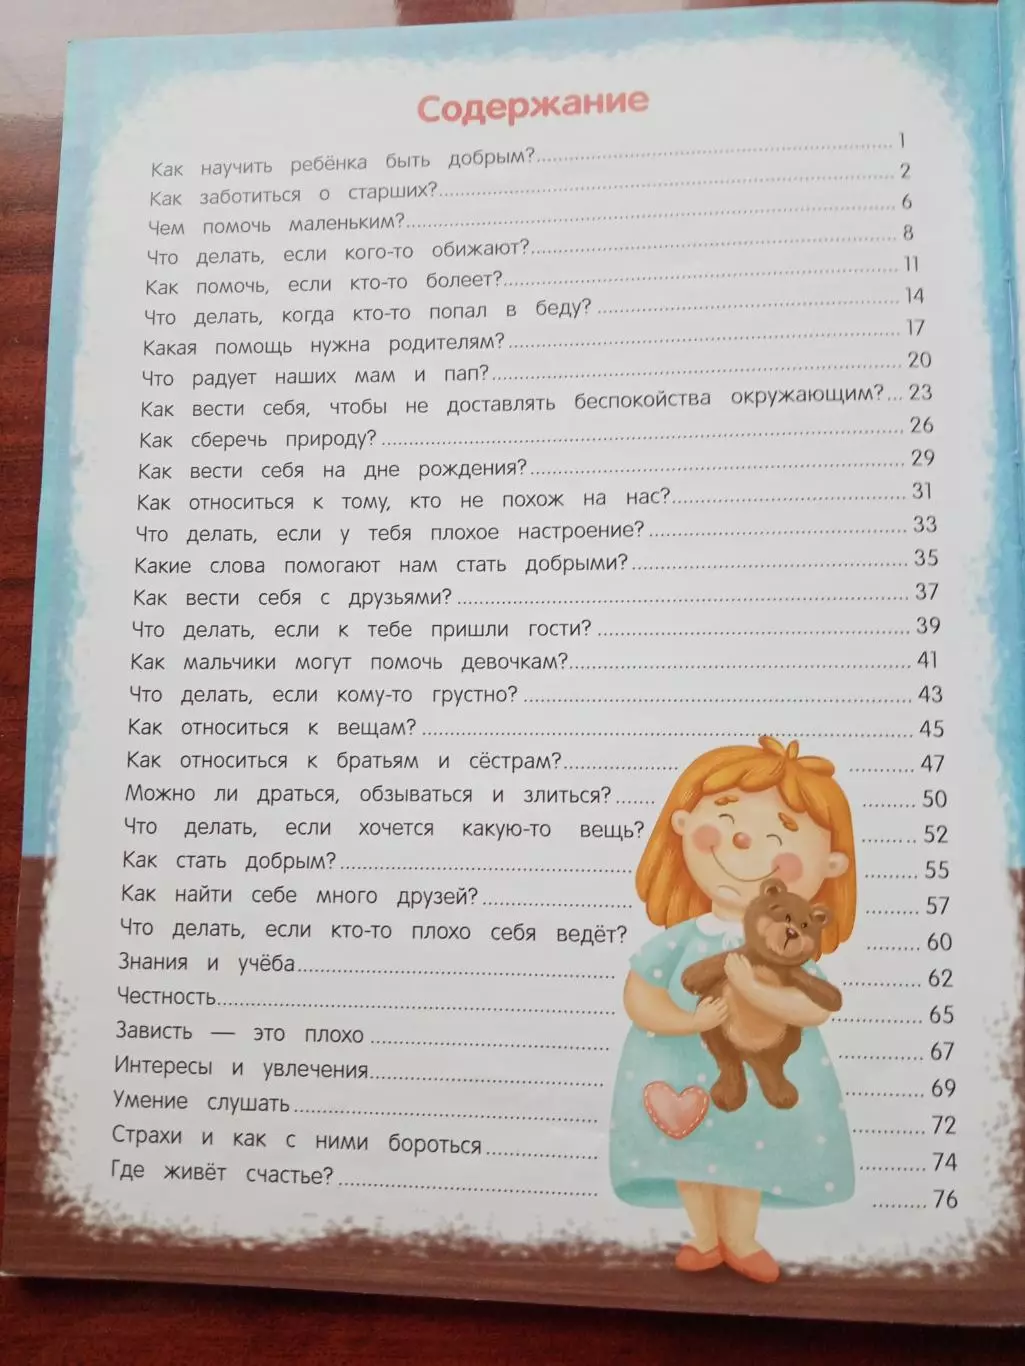 Содержание
Как научить ребёнка быть добрым?..........1
Как заботиться о старших?..........2
Чем помочь маленьким?..........6
Что делать, если кого-то обижают?..........8
Как помочь, если кто-то болеет?..........11
Что делать, когда кто-то попал в беду?..........14
Какая помощь нужна родителям?..........17
Что радует наших мам и пап?..........20
Как вести себя, чтобы не доставлять беспокойства окружающим?... 23
Как сберечь природу?..........26
Как вести себя на дне рождения?..........29
Как относиться к тому, кто не похож на нас?..........31
Что делать, если у тебя плохое настроение?..........33
Какие слова помогают нам стать добрыми?..........35
Как вести себя с друзьями?..........37
Что делать, если к тебе пришли гости?..........39
Как мальчики могут помочь девочкам?..........41
Что делать, если кому-то грустно?..........43
Как относиться к вещам?..........45
Как относиться к братьям и сёстрам?..........47
Можно ли драться, обзываться и злиться?..........50
Что делать, если хочется какую-то вещь?..........52
Как стать добрым?..........55
Как найти себе много друзей?..........57
Что делать, если кто-то плохо себя ведёт?..........60
Знания и учёба..........62
Честность..........65
Зависть — это плохо..........67
Интересы и увлечения..........69
Умение слушать..........72
Страхи и как с ними бороться..........74
Где живёт счастье?..........76